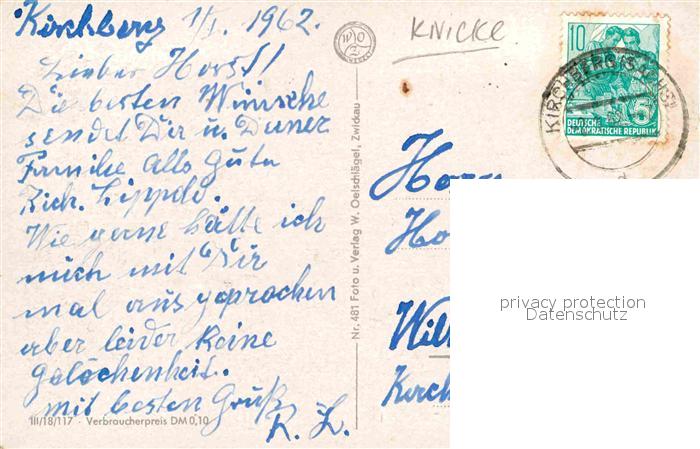 Kirchberg 1/1. 1962.
Lieber Horst!
Die besten Wünsche
sendet Dir u. Deiner
Familie alles Gute
Rich. Lippold.
Wie gerne hätte ich
mich mit Dir
mal ausgesprochen
aber leider keine
Gelegenheit.
mit besten Gruß
R. L.
III/18/117 · Verbraucherpreis DM 0,10
Nr. 481 Foto u. Verlag W. Oelschlägel, Zwickau
KNICKE
10
5
DEUTSCHE
DEMOKRATISCHE REPUBLIK
KIRCHBERG (SACHS)
Herrn
Ho
Wil
Kirch
privacy protection
Datenschutz